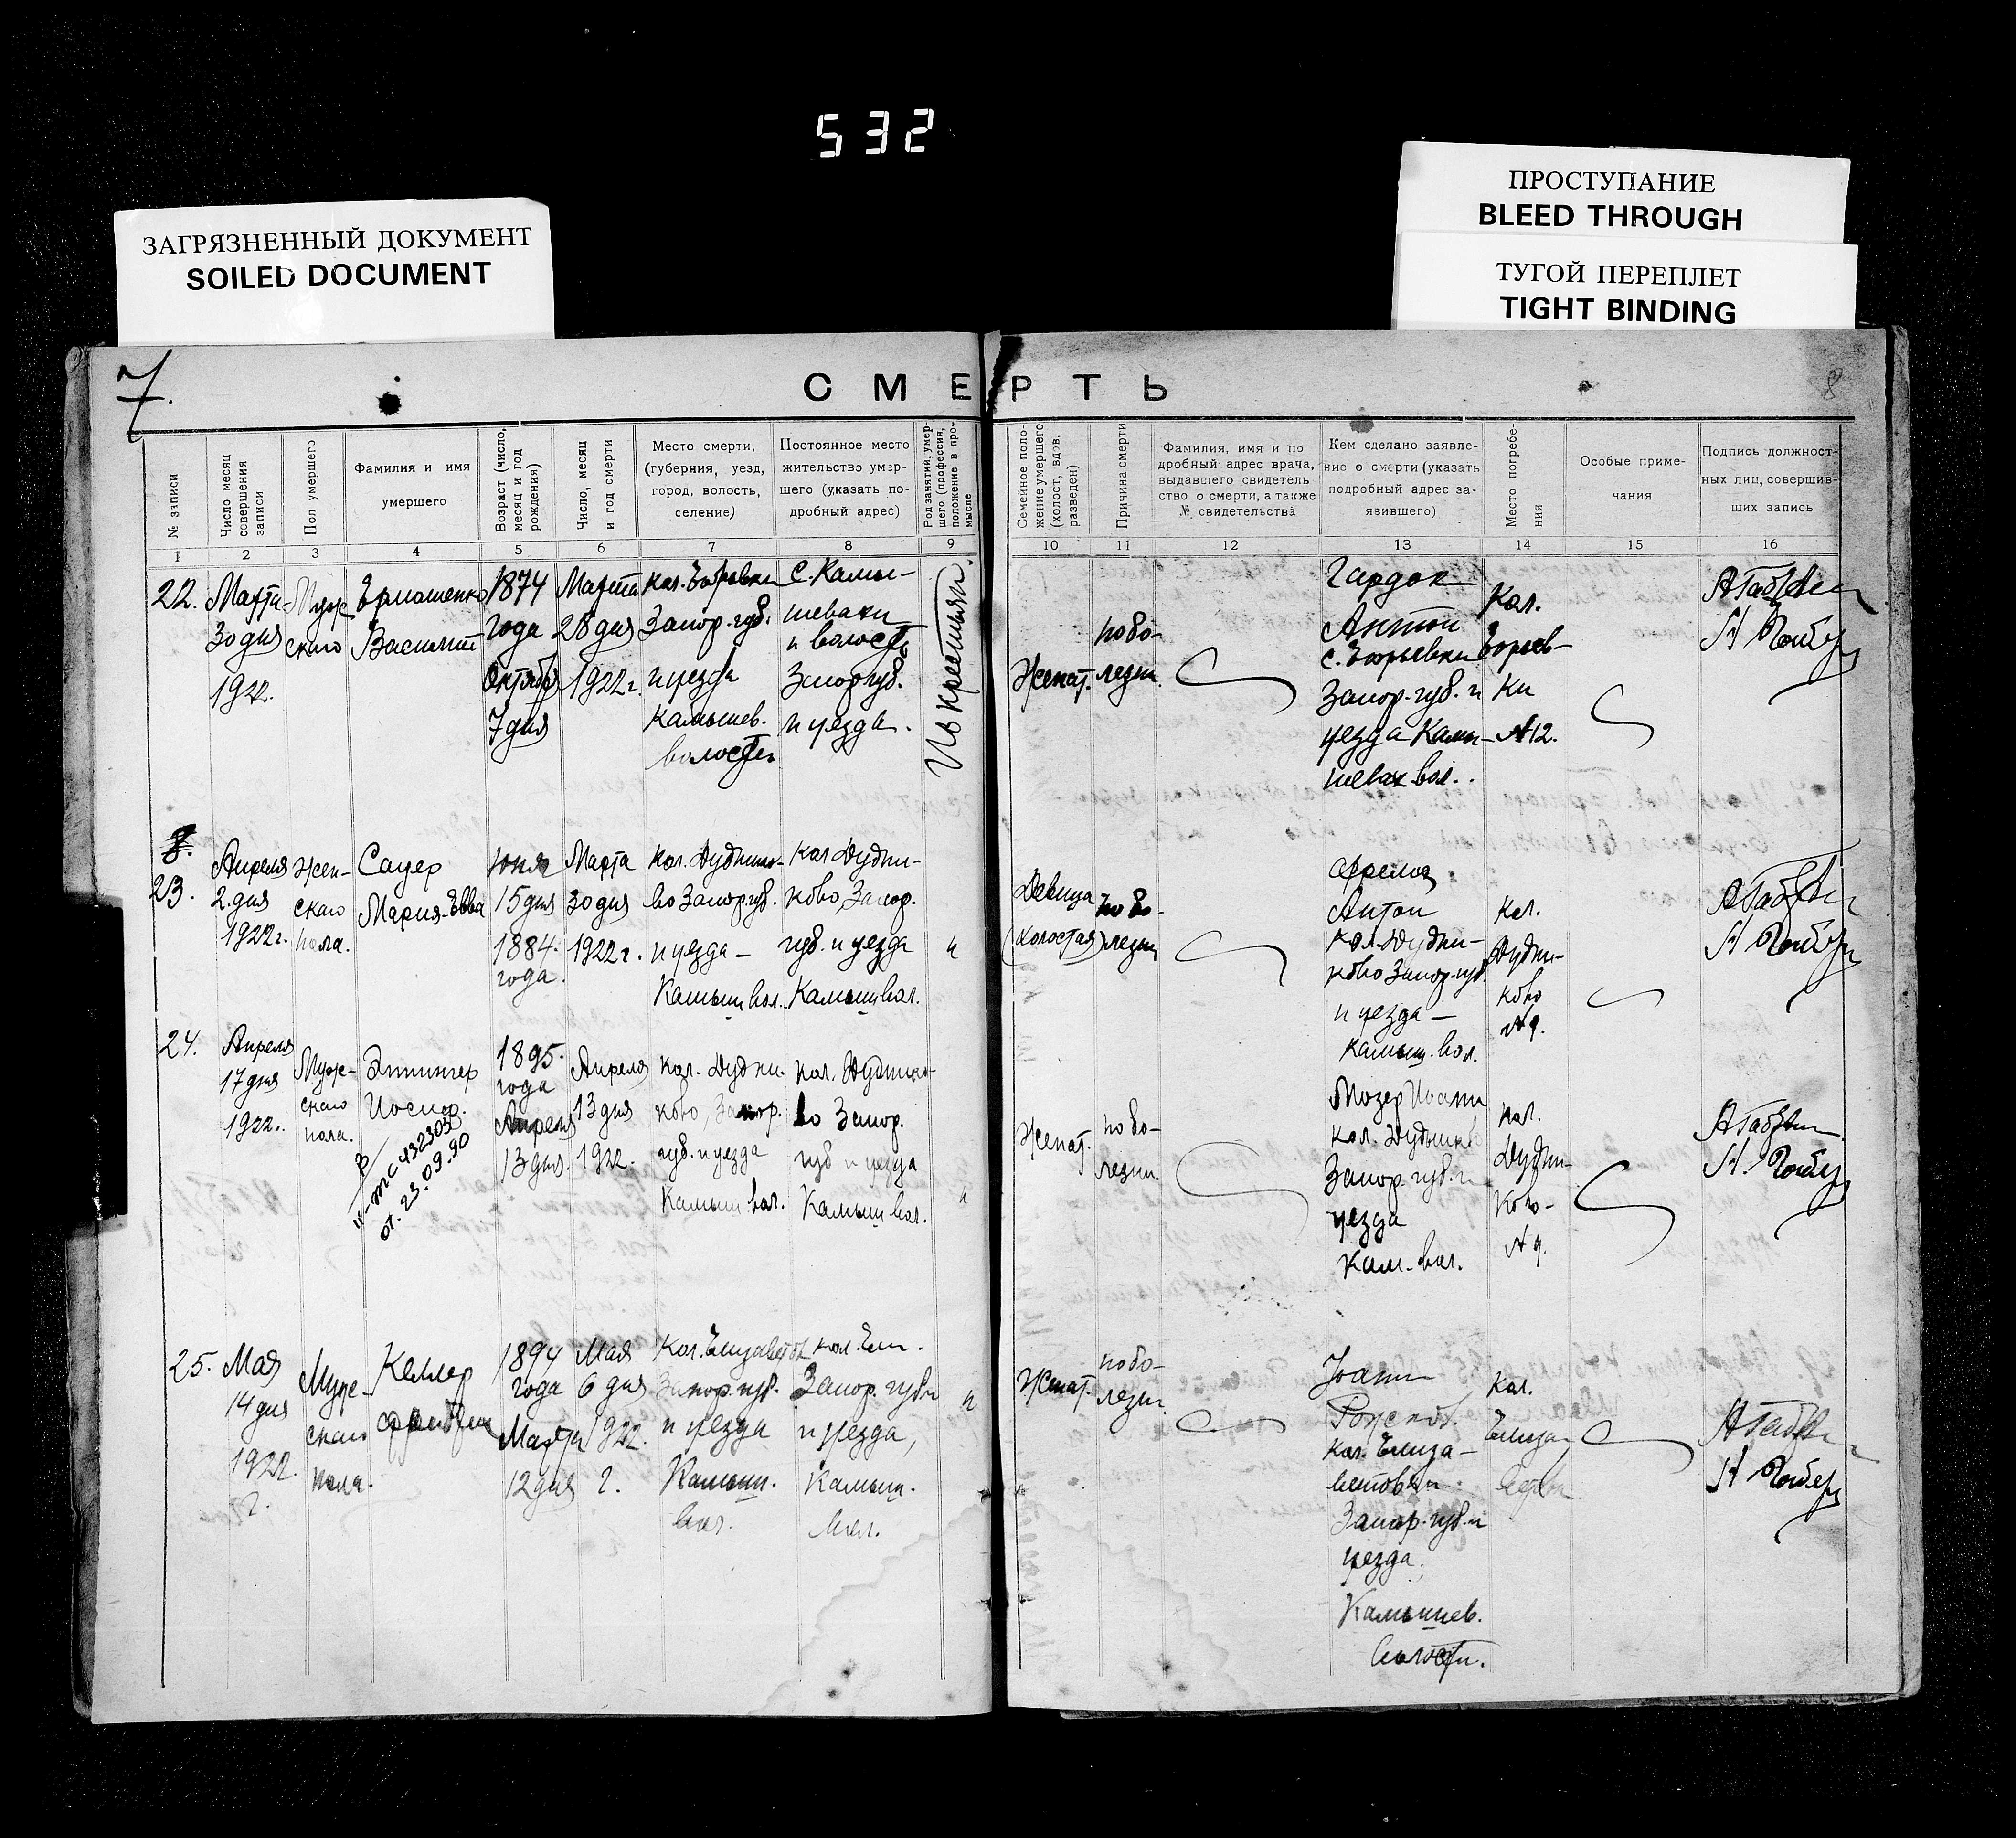 532
ЗАГРЯЗНЕННЫЙ ДОКУМЕНТ
SOILED DOCUMENT
ПРОСТУПАНИЕ
BLEED THROUGH
ТУГОЙ ПЕРЕПЛЕТ
TIGHT BINDING
7.
СМЕРТЬ
8
№ записи
Число месяц
совершения
записи
Пол умершего
Фамилия и имя
умершего
Возраст (число,
месяц и год
рождения)
Число, месяц
и год смерти
Место смерти,
(губерния, уезд,
город, волость,
селение)
Постоянное место
жительство умер-
шего (указать по-
дробный адрес)
Род занятий, умер-
шего (профессия,
положение в про-
мысле
Семейное поло-
жение умершего
(холост, вдов,
разведен)
Причина смерти
Фамилия, имя и по
дробный адрес врача,
выдавшего свидетель
ство о смерти, а также
№ свидетельства
Кем сделано заявле-
ние о смерти (указать
подробный адрес за-
явившего)
Место погребе-
ния
Особые приме-
чания
Подпись должност-
ных лиц, совершив-
ших запись
1 2 3 4 5 6 7 8 9 10 11 12 13 14 15 16
22.
Марта
30 дня
1922.
Муж
скаго
Ермошенко
Василий
1874
года
Октября
7 дня
Марта
28 дня
1922 г.
Запор. губ.
и уезда
Камышев.
волости
С. Камы-
шеваки
и волость
Запор губ.
и уезда.
Из крестьян.
Женат.
по бо-
лезни.
Гардок
Антон
Запор. губ. и
уезда Камы-
шевак вол.
Кол.
ки
№12.
23.
Апреля
2. дня
1922 г.
Жен-
скаго
пола.
Сауер
Мария-Евва
Июня
15 дня
1884.
года.
Марта
30 дня
1922 г.
Кол. Дудни-
во Запор губ.
и уезда —
Камыш вол.
Кол Дудни-
ково, Запор.
губ. и уезда
Камыш вол.
и
Девица
(холостая)
по бо-
лезни
Антон
кол. Дудни-
ково Запор. губ.
и уезда —
Камыш. вол.
Кол.
Дудни-
ково
№9.
24.
Апреля
17 дня
1922.
Муж-
скаго
пола.
Эттингер
Иосиф.
от. 23.09.90
1895.
года
Апреля
13 дня.
Апреля
13 дня
1922.
кол. Дудни-
ково, Запор.
губ. и уезда
Камыш. вол.
кол. Дудни-
во Запор.
губ и уезда
Камыш вол.
и
Женат.
по бо-
лезни.
Мозер Иоанн
Запор. губ. и
уезда
Кам. вол.
кол.
Дудни-
ково-
№9.
25.
Мая
14 дня
1922.
г.
Муж-
скаго
пола.
Келлер
1894
года
Марта
12 дня
Мая
6 дня
1922.
г.
Запор. губ.
и уезда
Камыш.
вол.
кол. Ели.
Запор. губ и
и уезда,
Камыш.
вол.
и
Женат.
по бо-
лезни
Иоанн
кол. Елиза-
Запор. губ. и
уезда,
Камышев.
волости.
Кол.